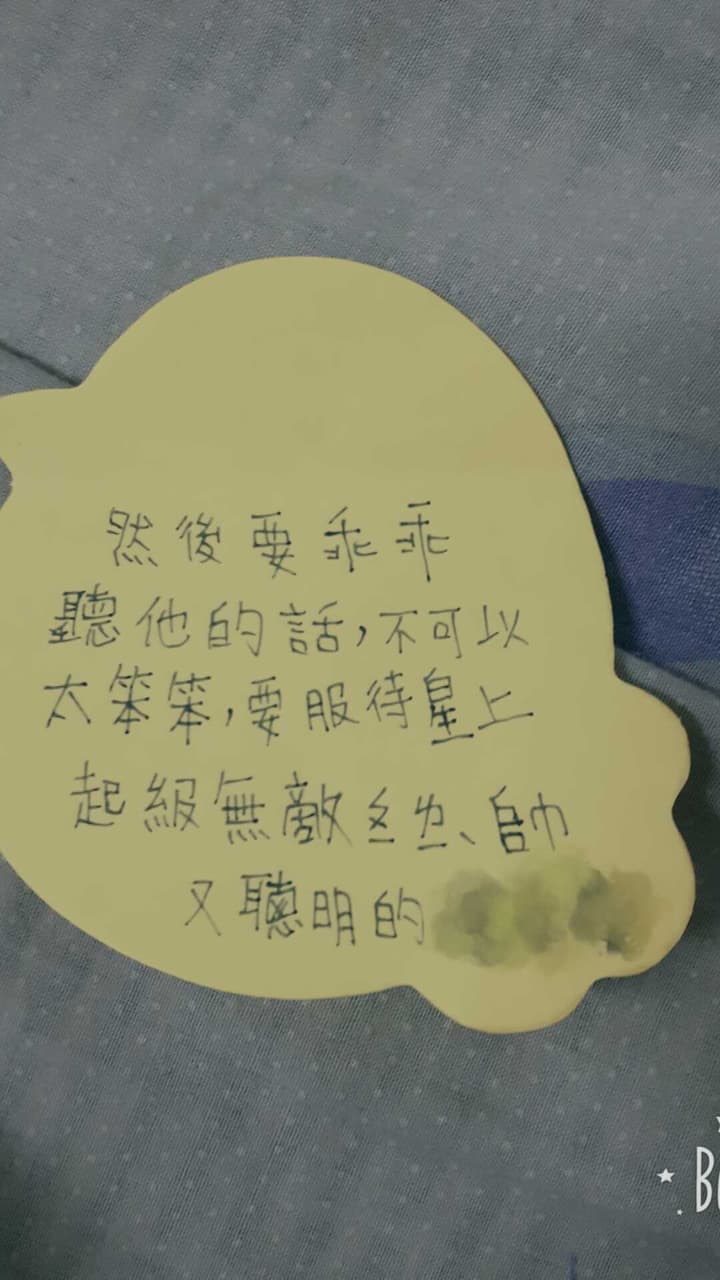 然後要乖乖
聽他的話,不可以
太笨笨,要服待皇上
起級無敵、帥
又聰明的